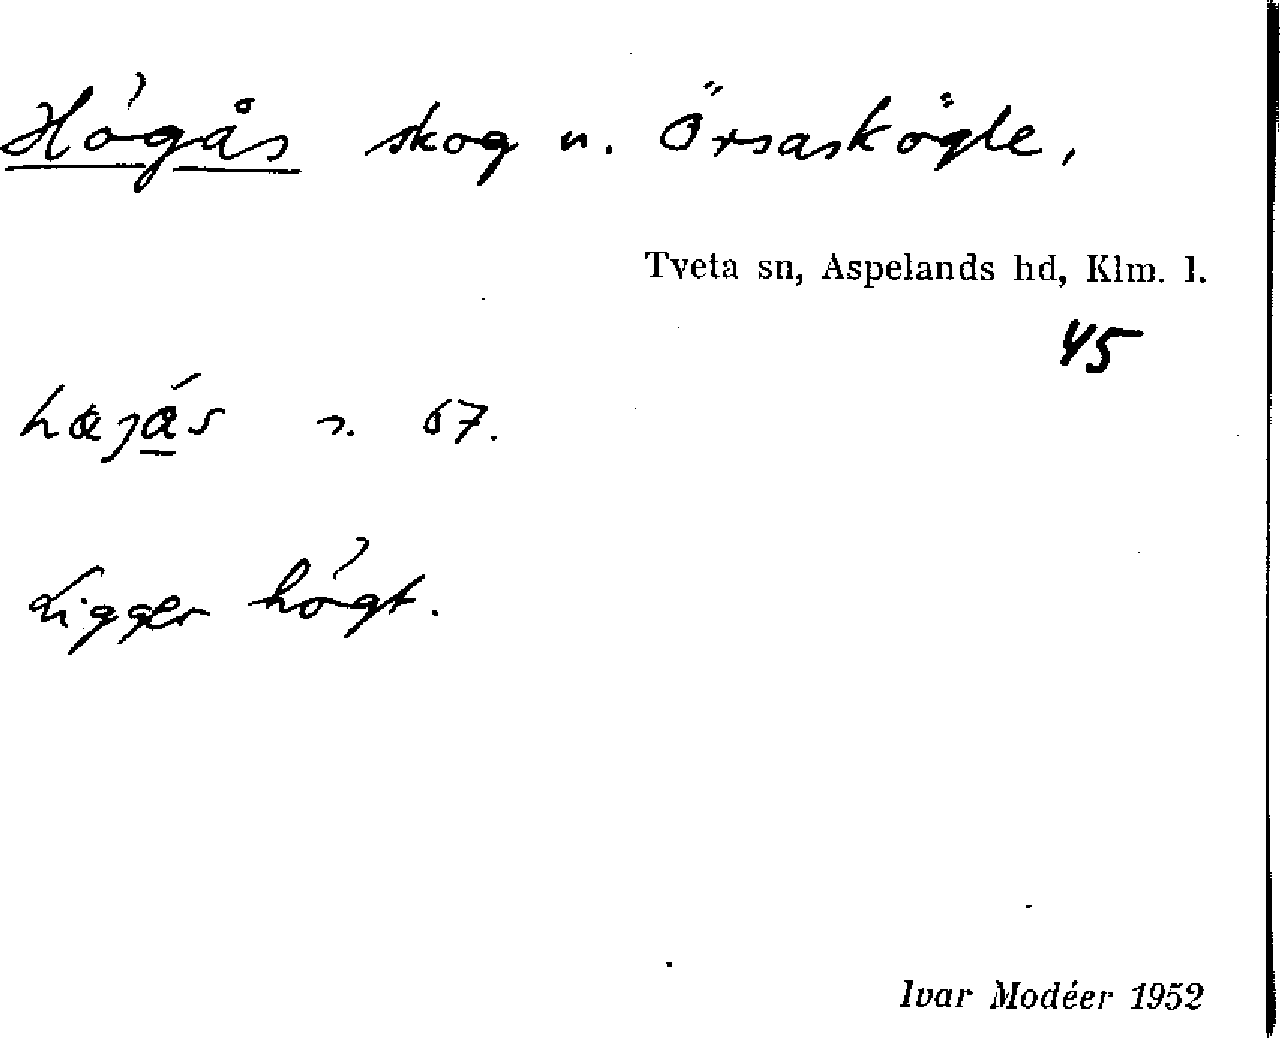 Högås skog u. Örsaskögle,
Tveta sn, Aspelands hd, Klm. l.
45
hœjás r. 67.
Ligger högt.
Ivar Modéer 1952